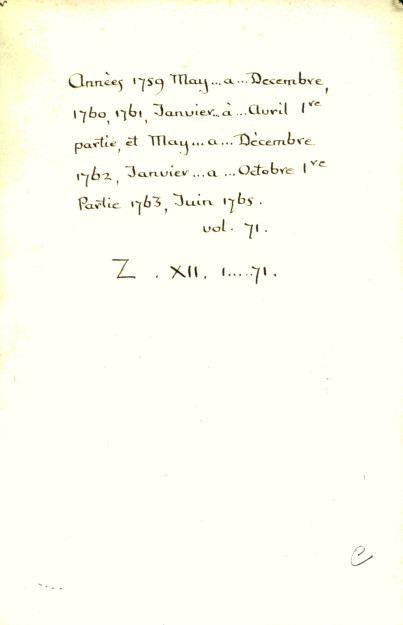 Années 1759 May...a...Decembre,
1760, 1761, Janvier..à...Avril 1re
partie, et May...a...Décembre
1762, Janvier...a...Octobre 1re
Partie 1763, Juin 1765.
vol. 71.
Z. XII. 1.....71.
C